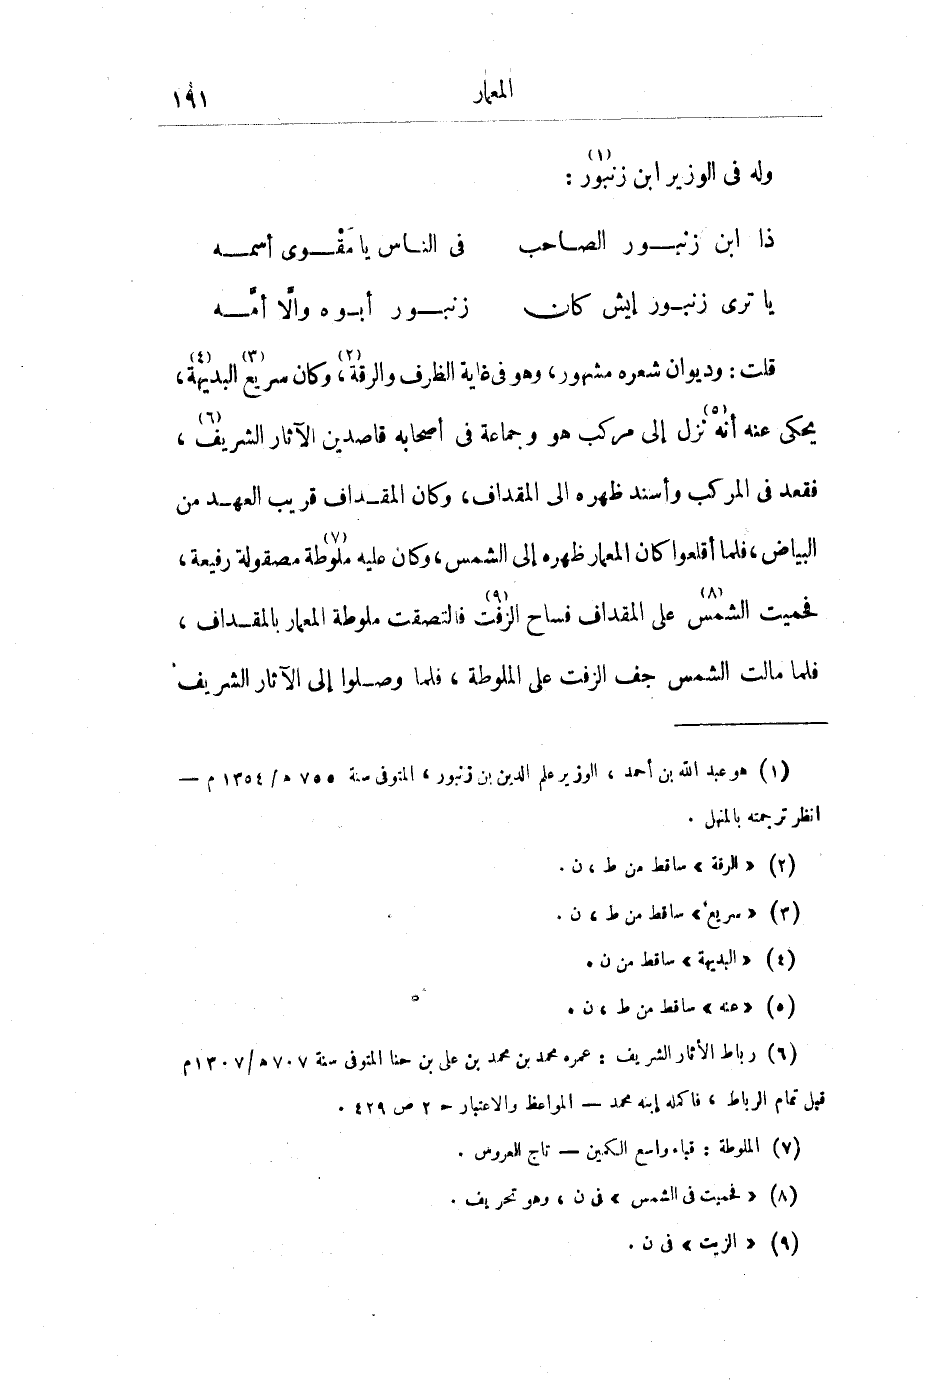 المعمار ١٩١
وله فى الوزير ابن زنبور(١) :
ذا ابن زنبـور الصاحب فى الناس يا مَقْـوى أسمـه
يا ترى زنبـور إيش كان زنبـور أبـوه والَّا أمّـه
قلت : وديوان شعره مشهور ، وهو فى غاية الظرف والرقة(٢) ، وكان سريع(٣) البديهة(٤) ،
يحكى عنه(٥) أنه نزل إلى مركب هو وجماعة فى أصحابه قاصدين الآثار الشريف(٦) ،
فقعد فى المركب وأسند ظهره الى المقداف ، وكان المقـداف قريب العهـد من
البياض ، فلما أقلعوا كان المعمار ظهره إلى الشمس ، وكان عليه ملوطة(٧) مصقولة رفيعة ،
فحميت الشمس(٨) على المقداف فساح الزفت(٩) فالتصقت ملوطة المعمار بالمقـداف ،
فلما مالت الشمس جف الزفت على الملوطة ، فلما وصـلوا إلى الآثار الشريف
(١) هو عبد الله بن أحمد ، الوزير علم الدين بن زنبور ، المتوفى سنة ٧٥٥ هـ/١٣٥٤ م —
انظر ترجمته بالمنهل .
(٢) « الرقة » ساقط من ط ، ن .
(٣) « سريع » ساقط من ط ، ن .
(٤) « البديهة » ساقط من ن .
(٥) « عنه » ساقط من ط ، ن .
(٦) رباط الأثار الشريف : عمره محمد بن محمد بن على بن حنا المتوفى سنة ٧٠٧ هـ/١٣٠٧م
قبل تمام الرباط ، فاكمله إبنه محمد — المواعظ والاعتبار حـ ٢ ص ٤٢٩ .
(٧) الملوطة : قباء واسع الكمين — تاج العروس .
(٨) « فحميت فى الشمس » فى ن ، وهو تحريف .
(٩) « الزيت » فى ن .